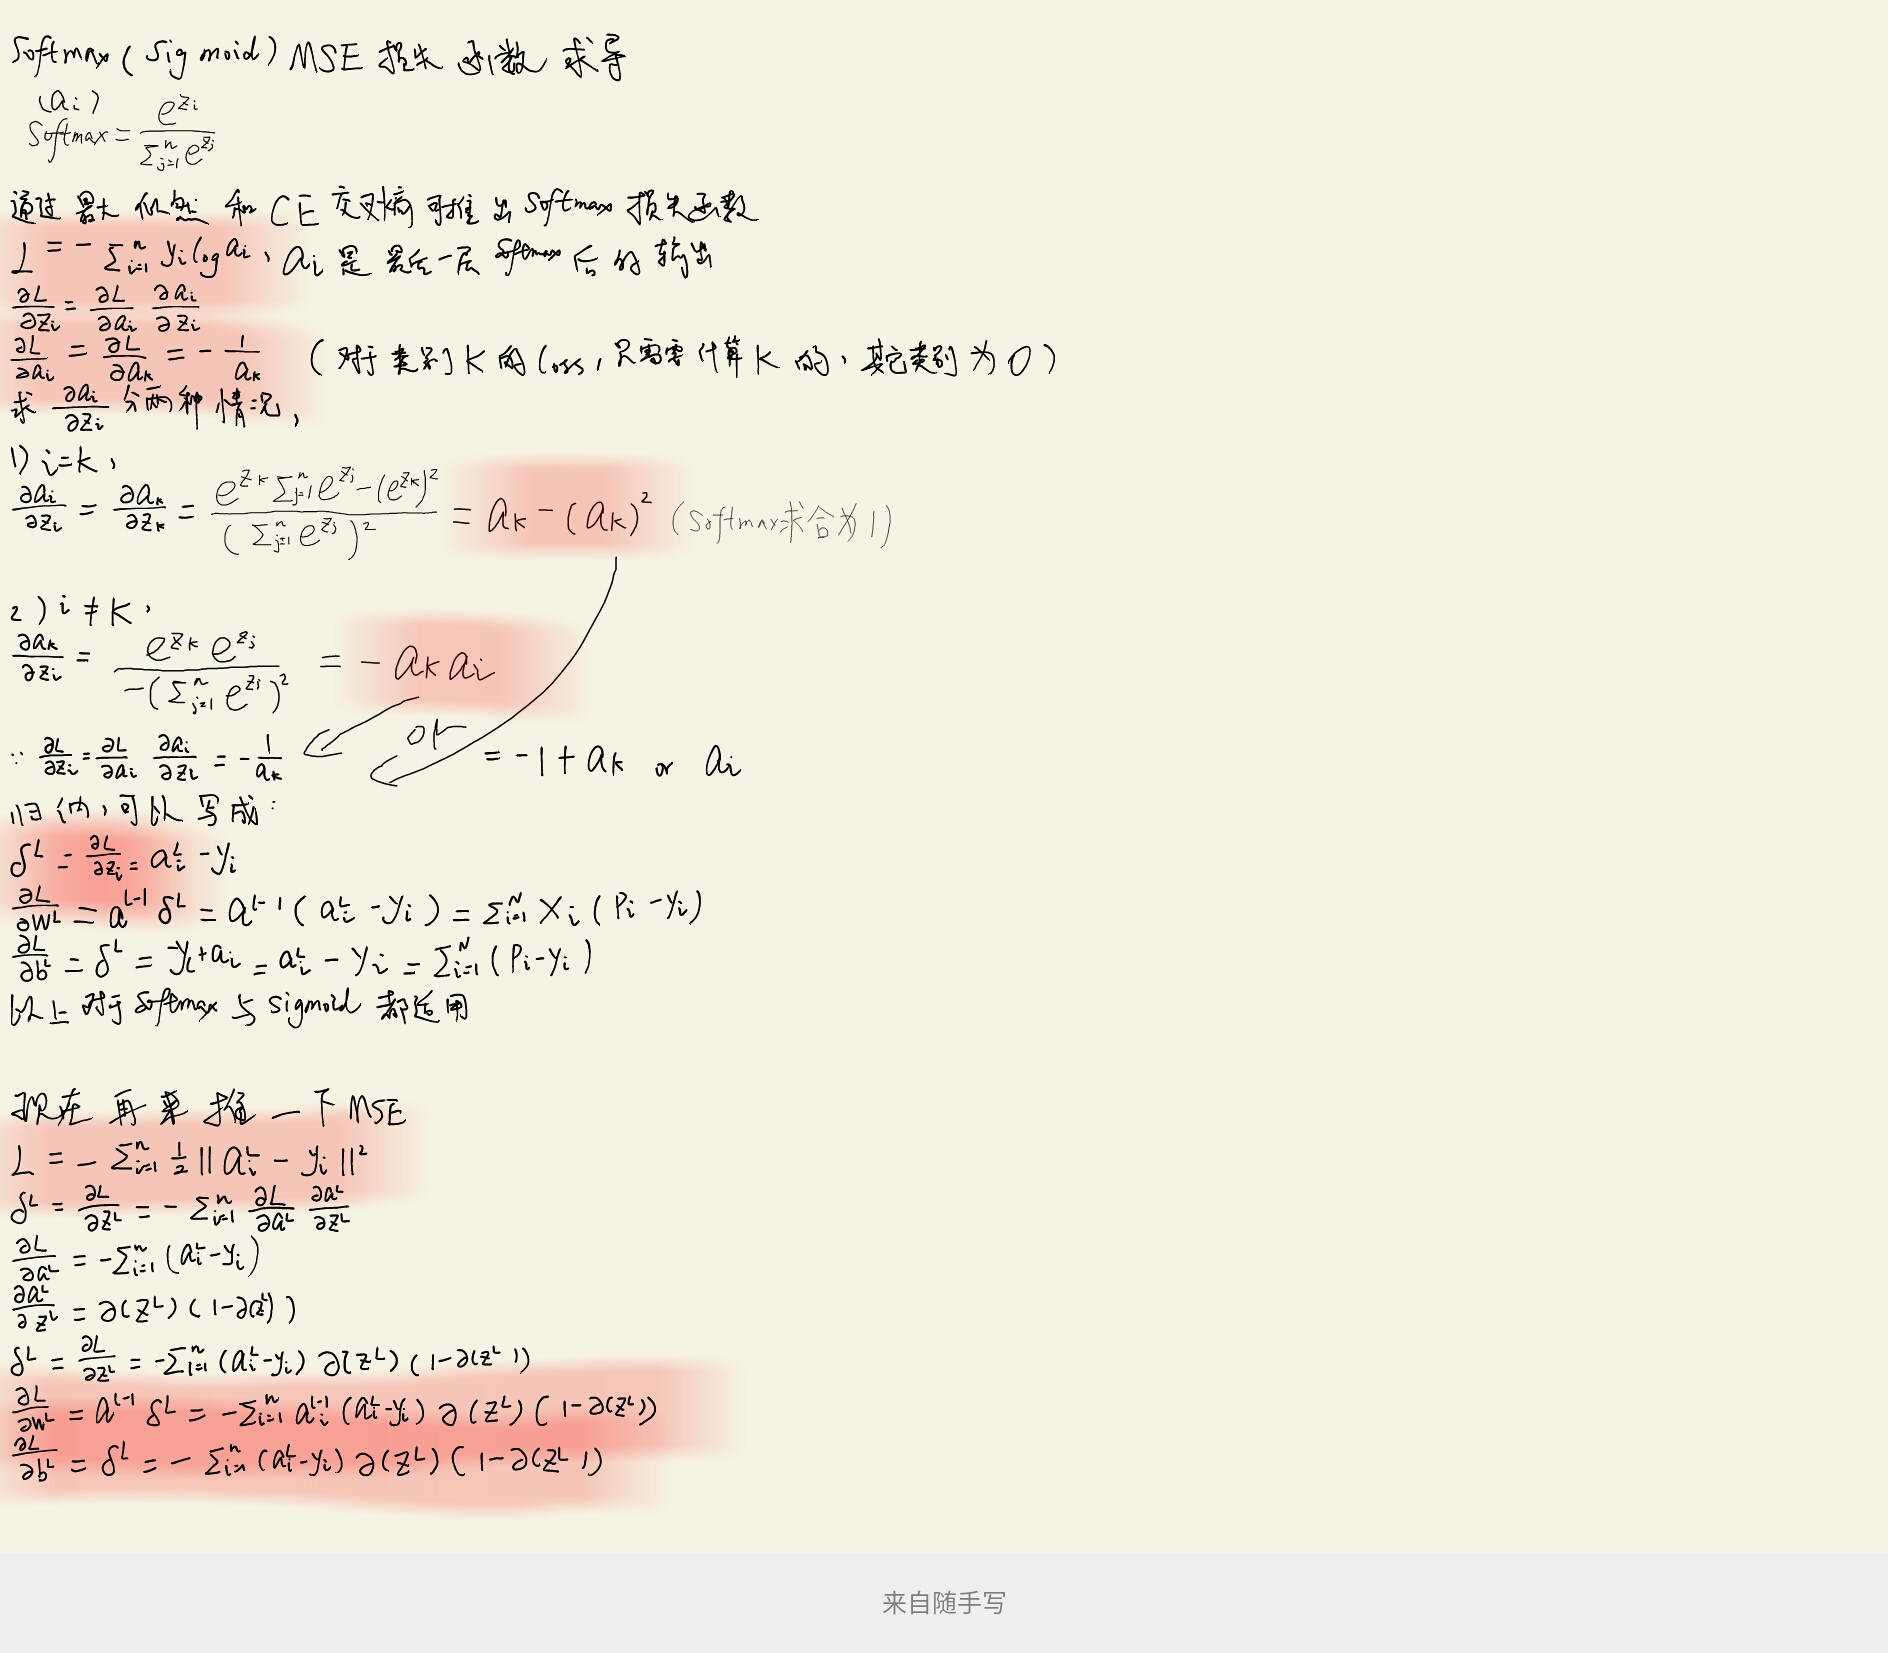 Softmax(Sigmoid) MSE 损失函数 求导
(ai)
Softmax = e^{zi} / Σ_{j=1}^n e^{zj}
通过最大似然和CE交叉熵可推出Softmax损失函数
L = - Σ_{i=1}^n yi log ai, ai是最后一层softmax后的输出
∂L/∂zi = ∂L/∂ai ∂ai/∂zi
∂L/∂ai = ∂L/∂ak = - 1/ak (对于类别K的loss, 只需要计算K的, 其它类别为0)
求 ∂ai/∂zi 分两种情况,
1) i=k,
∂ai/∂zi = ∂ak/∂zk = (e^{zk} Σ_{j=1}^n e^{zj} - (e^{zk})^2) / (Σ_{j=1}^n e^{zj})^2 = ak - (ak)^2 (Softmax求合为1)
2) i ≠ K,
∂ak/∂zi = e^{zk} e^{zj} / -(Σ_{j=1}^n e^{zj})^2 = - ak ai
∵ ∂L/∂zi = ∂L/∂ai ∂ai/∂zi = - 1/ak or = -1 + ak or ai
归纳,可以写成:
δ^L = ∂L/∂zi = ai^L - yi
∂L/∂W^L = a^{L-1} δ^L = a^{L-1} (ai^L - yi) = Σ_{i=1}^N Xi (Pi - yi)
∂L/∂b^L = δ^L = -yi + ai = ai^L - yi = Σ_{i=1}^N (Pi - yi)
以上对于softmax与sigmoid都适用
现在再来推一下MSE
L = - Σ_{i=1}^n 1/2 || ai^L - yi ||^2
δ^L = ∂L/∂z^L = - Σ_{i=1}^n ∂L/∂a^L ∂a^L/∂z^L
∂L/∂a^L = - Σ_{i=1}^n (ai^L - yi)
∂a^L/∂z^L = ∂(z^L)(1-∂(z^L))
δ^L = ∂L/∂z^L = - Σ_{i=1}^n (ai^L - yi) ∂(z^L)(1-∂(z^L))
∂L/∂W^L = a^{L-1} δ^L = - Σ_{i=1}^n ai^{L-1} (ai^L - yi) ∂(z^L)(1-∂(z^L))
∂L/∂b^L = δ^L = - Σ_{i=1}^n (ai^L - yi) ∂(z^L)(1-∂(z^L))
来自随手写